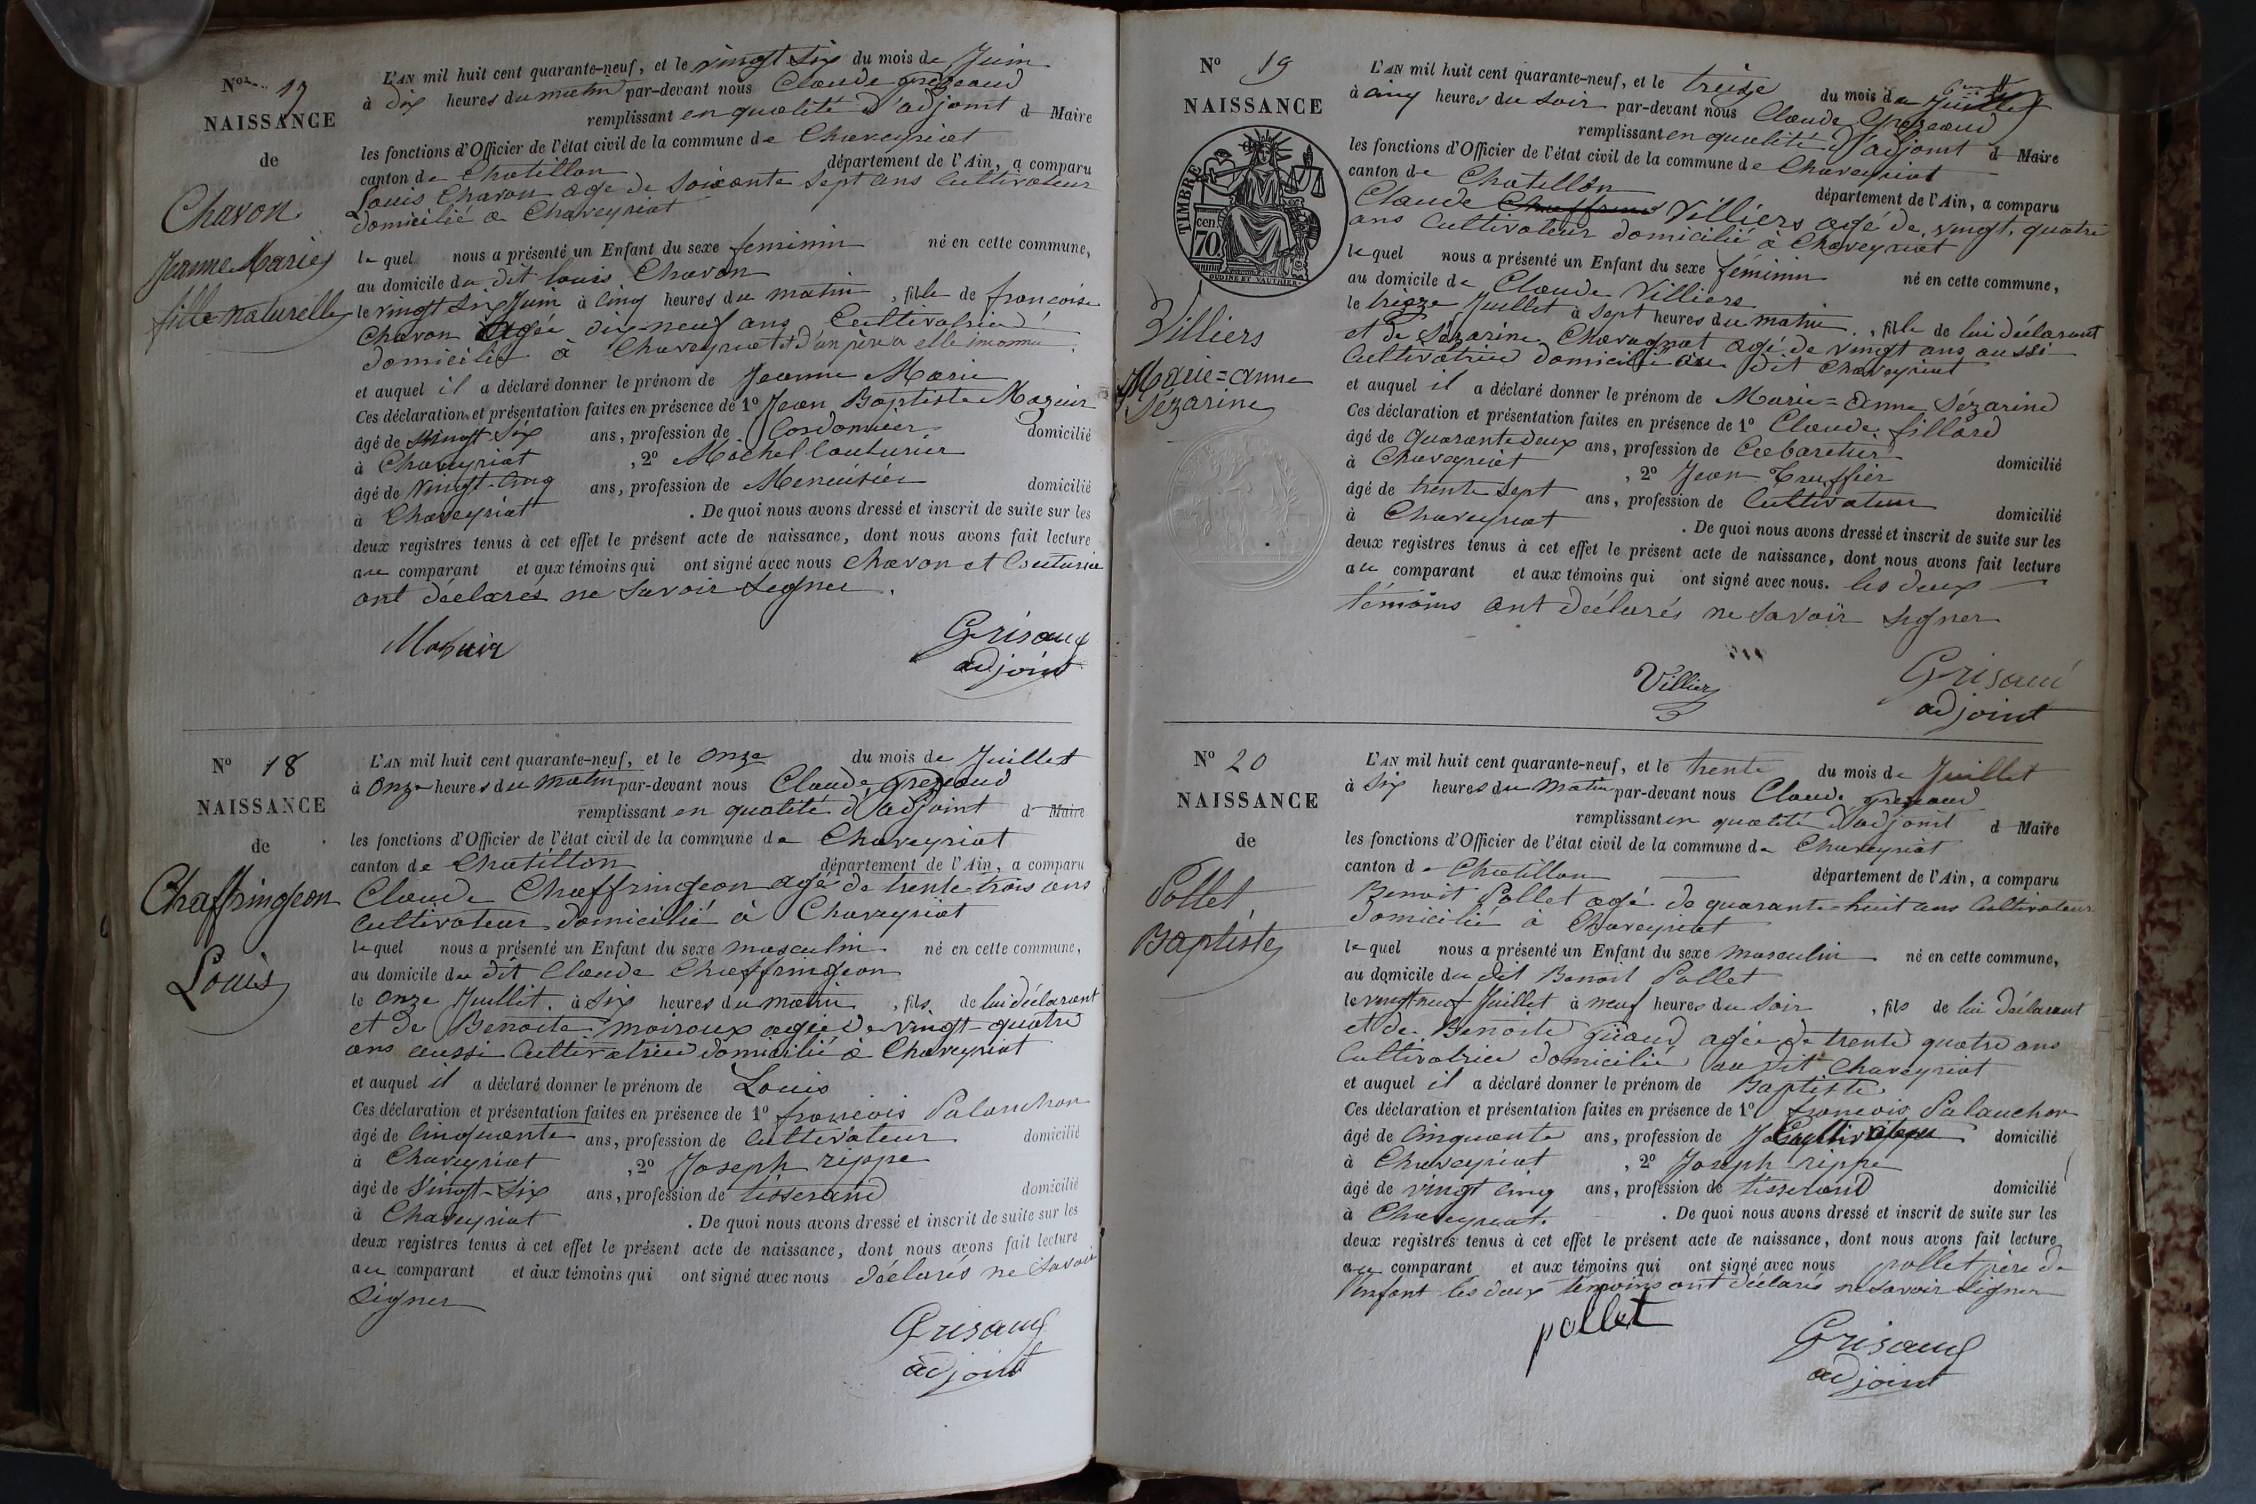 Nos 17
NAISSANCE
de
Chavon
Jeanne Marie
fille naturelle
L'AN mil huit cent quarante-neuf, et le vingt Six du mois de Juin
à dix heures du matin par-devant nous Claude grezeaud
remplissant en qualité d'adjoint d Maire
les fonctions d'Officier de l'état civil de la commune de Chaveyriat
canton de Chatillon département de l'Ain, a comparu
Louis Chavon age de Soixante Sept ans Cultivateur
domicilié a Chaveyriat
le quel nous a présenté un Enfant du sexe feminin né en cette commune,
au domicile du dit louis Chavon
le vingt Six Juin à Cinq heures du matin, fille de francoise
Chavon agée dix-neuf ans Cultivatrice
domicilié à Chaveyriat et d'un père a elle inconnu
et auquel il a déclaré donner le prénom de Jeanne Marie
Ces déclaration et présentation faites en présence de 1o Jean Baptiste Mazuir
âgé de Vingt Six ans, profession de Cordonnier domicilié
à Chaveyriat, 2o Michel Couturier
âgé de Vingt-Cinq ans, profession de Menuisier domicilié
à Chaveyriat. De quoi nous avons dressé et inscrit de suite sur les
deux registres tenus à cet effet le présent acte de naissance, dont nous avons fait lecture
au comparant et aux témoins qui ont signé avec nous Chavon et Couturier
ont déclarés ne Savoir Signer.
Mazuir
Grisaud
adjoint
No 18
NAISSANCE
de
Chaffringeon
Louis
L'AN mil huit cent quarante-neuf, et le Onze du mois de Juillet
à Onze heures du matin par-devant nous Claude grezeaud
remplissant en qualité d'adjoint d Maire
les fonctions d'Officier de l'état civil de la commune de Chaveyriat
canton de Chatillon département de l'Ain, a comparu
Claude Chaffringeon agé de trente-trois ans
Cultivateur domicilié à Chaveyriat
le quel nous a présenté un Enfant du sexe masculin né en cette commune,
au domicile du dit Claude Chaffringeon
le Onze Juillet à Six heures du matin, fils de lui déclarant
et de Benoite moiroux agée de vingt-quatre
ans aussi Cultivatrice domicilié à Chaveyriat
et auquel il a déclaré donner le prénom de Louis
Ces déclaration et présentation faites en présence de 1o francois Palanchon
âgé de Cinquante ans, profession de Cultivateur domicilié
à Chaveyriat, 2o Joseph rippe
âgé de Vingt-Six ans, profession de tisserand domicilié
à Chaveyriat. De quoi nous avons dressé et inscrit de suite sur les
deux registres tenus à cet effet le présent acte de naissance, dont nous avons fait lecture
au comparant et aux témoins qui ont signé avec nous déclarés ne Savoir
Signer
Grisaud
adjoint
No 19
NAISSANCE
de
TIMBRE
cen.
70
OUDINE ET VAUTHIER
Villiers
Marie=anne
Sézarine
L'AN mil huit cent quarante-neuf, et le treize du mois de Juillet
à cinq heures du Soir par-devant nous Claude Grezeaud
remplissant en qualité d'adjoint d Maire
les fonctions d'Officier de l'état civil de la commune de Chaveyriat
canton de Chatillon département de l'Ain, a comparu
Claude Villiers agé de vingt-quatre
ans Cultivateur domicilié à Chaveyriat
le quel nous a présenté un Enfant du sexe féminin né en cette commune,
au domicile de Claude Villiers
le treize Juillet à Sept heures du matin, fille de lui déclarant
et de Sézarine Chavagnat agé de vingt ans aussi
Cultivatrice domicilié au dit Chaveyriat
et auquel il a déclaré donner le prénom de Marie=anne Sézarine
Ces déclaration et présentation faites en présence de 1o Claude fillard
âgé de quarante deux ans, profession de Cabaretier domicilié
à Chaveyriat, 2o Jean Truffier
âgé de trente Sept ans, profession de Cultivateur domicilié
à Chaveyriat. De quoi nous avons dressé et inscrit de suite sur les
deux registres tenus à cet effet le présent acte de naissance, dont nous avons fait lecture
au comparant et aux témoins qui ont signé avec nous. les deux
témoins Ont déclarés ne Savoir Signer
Villiers
Grisaud
adjoint
No 20
NAISSANCE
de
Pollet
Baptiste
L'AN mil huit cent quarante-neuf, et le trente du mois de Juillet
à Six heures du Matin par-devant nous Claude grezeaud
remplissant en qualité d'adjoint d Maire
les fonctions d'Officier de l'état civil de la commune de Chaveyriat
canton de Chatillon département de l'Ain, a comparu
Benoit Pollet agé de quarante-huit ans Cultivateur
domicilié à Chaveyriat
le quel nous a présenté un Enfant du sexe masculin né en cette commune,
au domicile du dit Benoit Pollet
le vingt neuf Juillet à neuf heures du Soir, fils de lui déclarant
et de Benoite agée de trente quatre ans
Cultivatrice domicilié au dit Chaveyriat
et auquel il a déclaré donner le prénom de Baptiste
Ces déclaration et présentation faites en présence de 1o francois Palanchon
âgé de Cinquante ans, profession de Cultivateur domicilié
à Chaveyriat, 2o Joseph rippe
âgé de vingt cinq ans, profession de tisserand domicilié
à Chaveyriat. De quoi nous avons dressé et inscrit de suite sur les
deux registres tenus à cet effet le présent acte de naissance, dont nous avons fait lecture
au comparant et aux témoins qui ont signé avec nous pollet père de
l'enfant les deux témoins ont déclarés ne Savoir Signer
pollet
Grisaud
adjoint